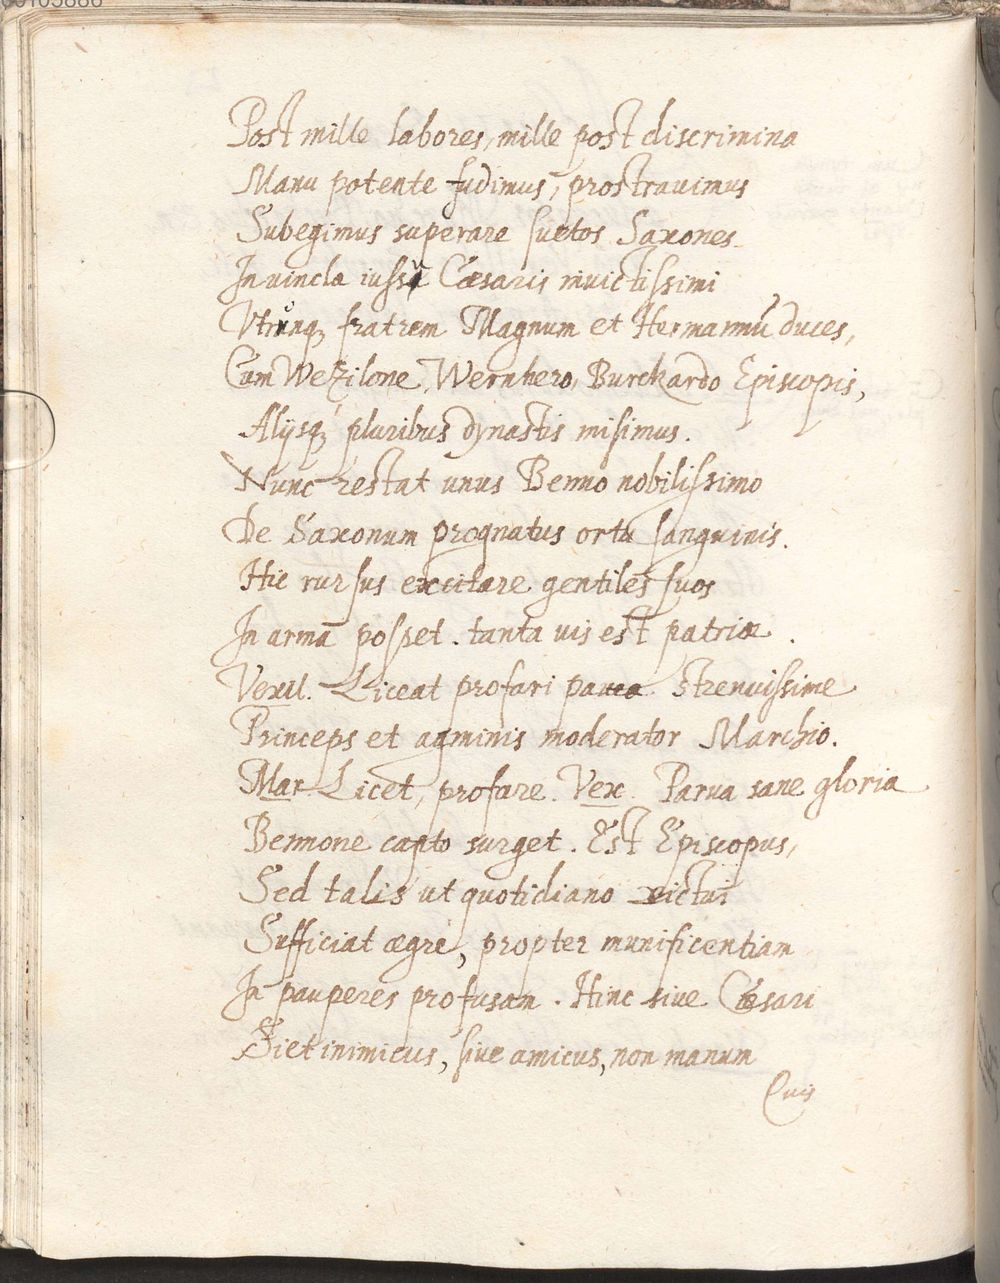 Post mille labores, mille post discrimina
Manu potente fudimus, prostrauimus
Subegimus superare suetos Saxones
In uincla iussu Cæsaris inuictissimi
Vtrunq₃ fratrem Magnum et Hermannū duces,
Cum Wezilone, Wernhero, Burckardo Episcopis,
Alijsq₃ pluribus dynastis misimus.
Nunc restat unus Benno nobilissimo
De Saxonum prognatus ortu sanguinis.
Hic rursus excitare gentiles suos
In arma posset. tanta uis est patriæ.
Vexil. Liceat profari pauca strenuissime
Princeps et agminis moderator Marchio.
Mar. Licet, profare. Vex. Parua sane gloria
Bennone capto surget. Est Episcopus,
Sed talis ut quotidiano uictui
Sufficiat ægre, propter munificentiam
In pauperes profusam. Hinc siue Cæsari
Siet inimicus, siue amicus, non manum
Quis